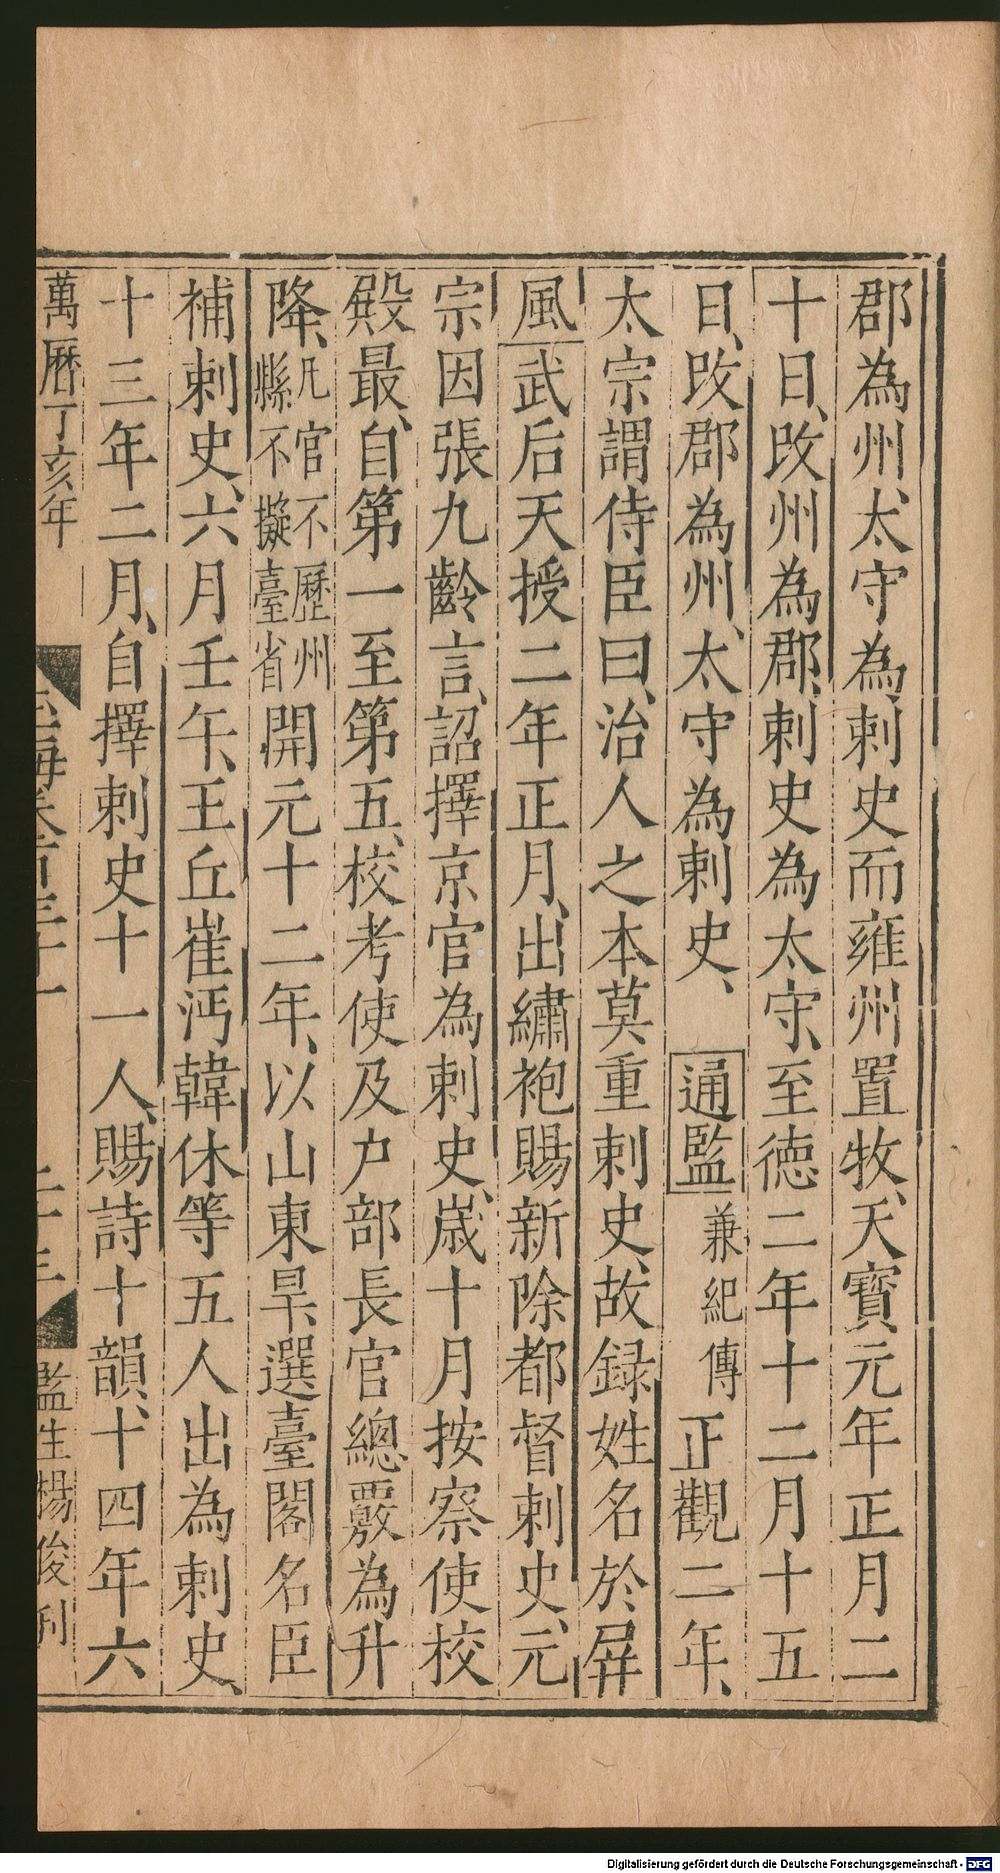 郡為州、太守為、刺史而雍州置牧、天寶元年正月二
十日、改州為郡、刺史為太守、至德二年十二月十五
日、改郡為州、太守為刺史、 通監 兼紀傳 正觀二年、
太宗謂侍臣曰、治人之本莫重刺史、故録姓名於屏
風 武后天授二年正月、出繡袍賜新除都督刺史、元
宗因張九齡言、詔擇京官為刺史、歲十月按察使校
殿最、自第一至第五、校考使及户部長官總覈為升
降、凡官不歷州縣不擬臺省 開元十二年、以山東旱、選臺閣名臣
補刺史、六月壬午、王丘崔沔韓休等五人出為刺史、
十三年二月、自擇刺史十一人、賜詩十韻、十四年六
萬曆丁亥年 玉海卷百三十一 二十三 監生楊俊刊
Digitalisierung gefördert durch die Deutsche Forschungsgemeinschaft - DFG